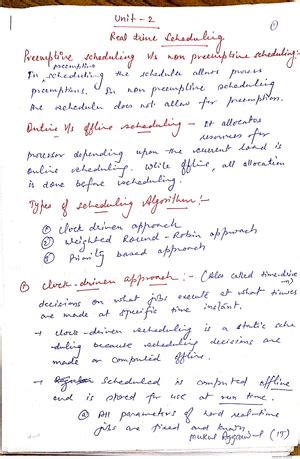 Unit - 2
①
Real time Scheduling
Preemptive scheduling V/s non preemptive scheduling:-
In preemptive scheduling the scheduler allows process
preemptions. In non preemptive scheduling
the scheduler does not allow for preemption.
Online V/s offline scheduling - It allocates
resources for
processor depending upon the current load is
online scheduling. While offline, all allocation
is done before scheduling.
Types of scheduling Algorithm:-
① Clock driven approach
② Weighted Round-Robin approach
③ Priority based approach
① Clock-driven approach:- (Also called time-driven)
decisions on what jobs execute at what times
are made at specific time instant.
→ clock-driven scheduling is a static sche
duling because scheduling decisions are
made or computed offline.
→ Scheduled is computed offline
and is stored for use at run time.
② All parameters of hard real-time
jobs are fixed and known.
Mukul Aggarwal (IT)